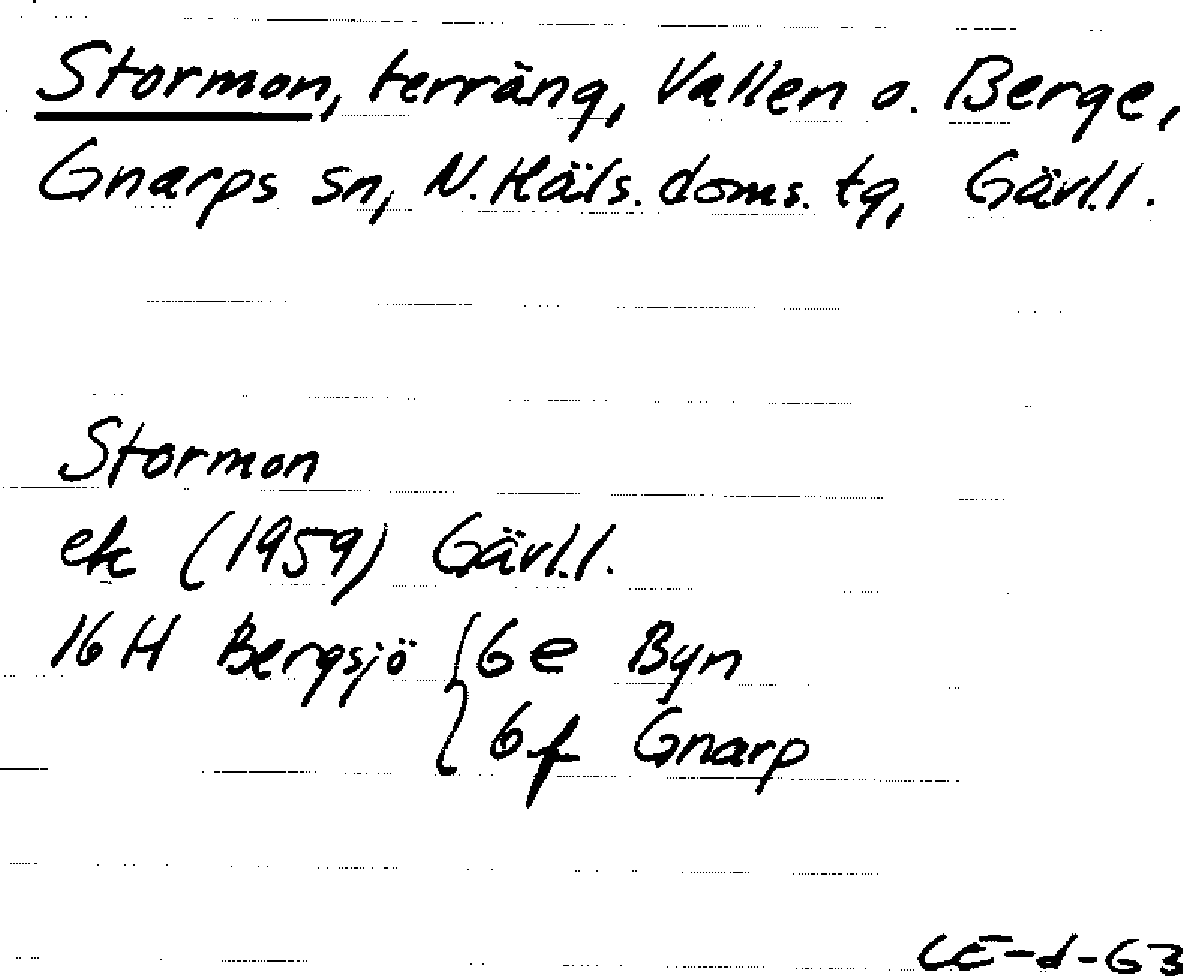 Stormon, terräng, Vallen o. Berge,
Gnarps sn, N. Häls. doms. tg, Gävl.l.
Stormon
ek (1959) Gävl.l.
16 H Bergsjö { 6 e Byn
6 f Gnarp
CE-d-63